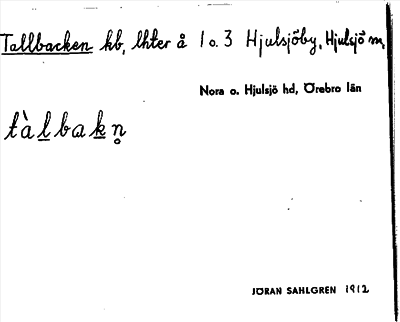 Tallbacken kb, lhter å 1 o. 3 Hjulsjöby, Hjulsjö sn,
Nora o. Hjulsjö hd, Örebro län
tàlbakn̥
JÖRAN SAHLGREN 1912